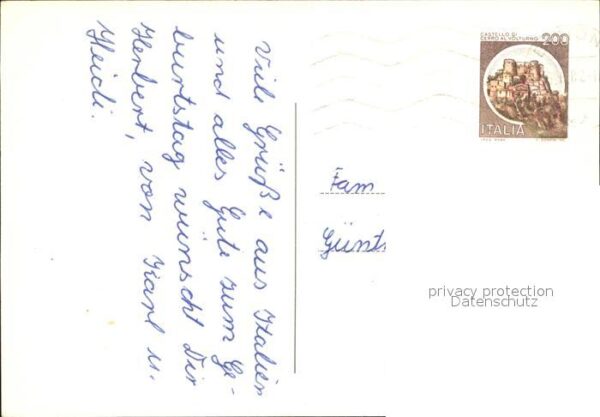 Viele Grüße aus Italien
und alles Gute zum Ge-
burtstag wünscht Dir
Herbert, von Karl u.
Heidi.
CASTELLO DI
CERRO AL VOLTURNO
200
ITALIA
Fam
Günt
privacy protection
Datenschutz